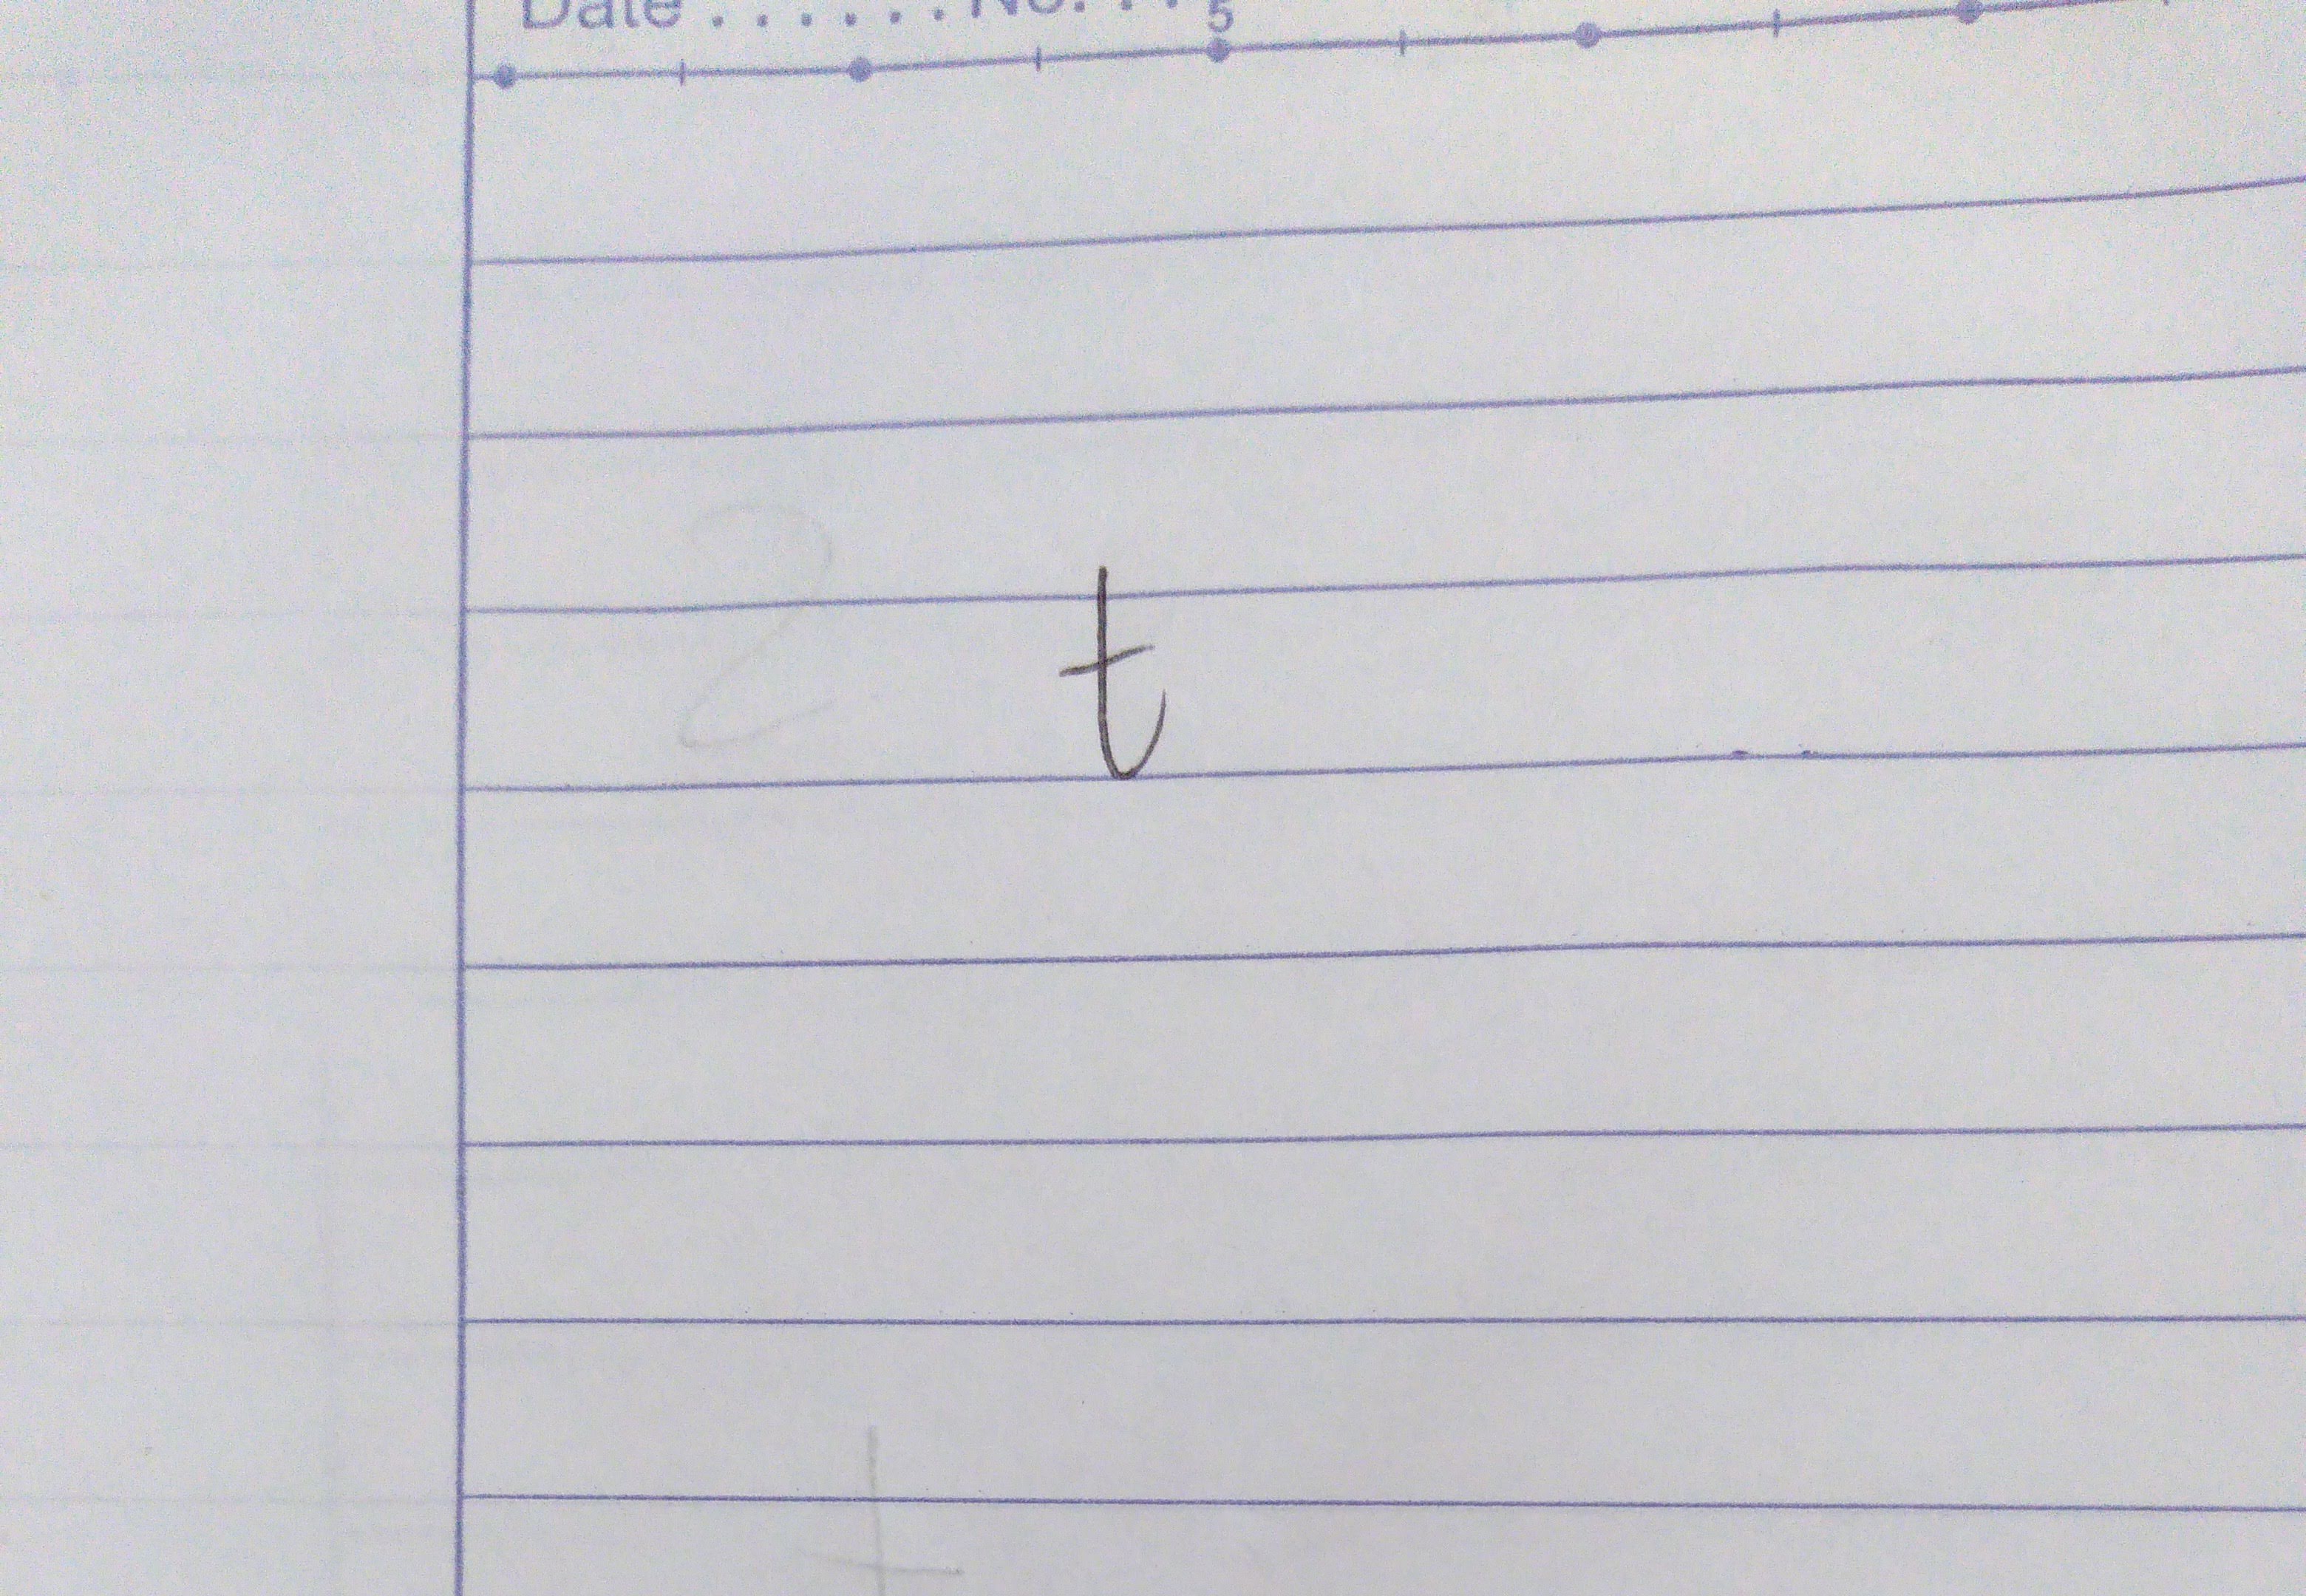 Date . . . . . . No. . . .
5
t